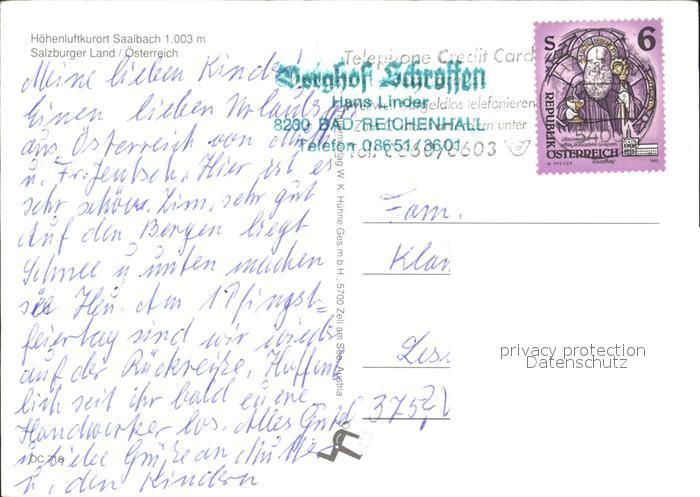 Höhenluftkurort Saalbach 1.003 m
Salzburger Land / Österreich
Meine lieben Kinder!
Einen lieben Urlaubs
aus Österreich von
u. Fr. Jentsch. Hier ist es
sehr schön. Zim. sehr gut
Auf den Bergen liegt
Schnee u unten machen
sie Heu. Am 1 Pfingst=
feiertag sind wir wieder
auf der Rückreise. Hoffent
lich seit ihr bald euere
Handwerker los. Alles Gute
u. liebe Grüße an
u. den Kindern
DC 716
Verlag W. K. Hühne Ges.m.b.H., 5700 Zell am See, Austria
Telephone Credit Card
Berghof Schroffen
Hans Linder
bargeldlos telefonieren
8230 BAD REICHENHALL
unter
Telefon 08651/3601
S 6
REPUBLIK
ÖSTERREICH
Fam.
Klau
Less
privacy protection
Datenschutz
3752